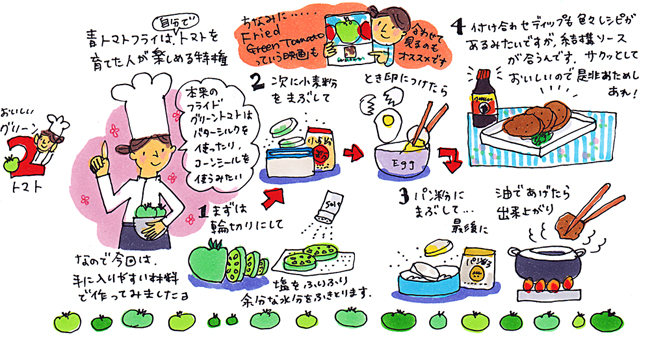 青トマトフライは、トマトを
自分で
育てた人が楽しめる特権
ちなみに‥‥‥
Fried
Green Tomato
っていう映画も
あわせて
見るのも
オススメです
おいしい
グリーン
2
トマト
本来の
フライド
グリーントマトは
バターミルクを
使ったり、
コーンミールを
使うみたい
なので今回は、
手に入りやすい材料
で作ってみましたョ
1 まずは
輪切りにして
salt
塩をふりふり
余分な水分をふきとります.
2 次に小麦粉
をまぶして
小麦粉
とき卵につけたら
Egg
3 パン粉に
まぶして...
最後に
パン粉
油であげたら
出来上がり
4 付け合わせディップも色々レシピが
あるみたいですが、結構ソース
が合うんです. サクッとして
おいしいので是非おためし
あれ!